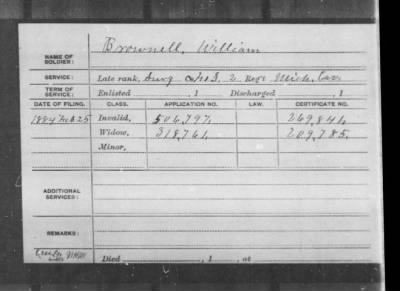 NAME OF SOLDIER: Brownell, William
SERVICE: Late rank, Co. 2. Regt Mich. Cav
TERM OF SERVICE: Enlisted , 1 Discharged , 1
DATE OF FILING. CLASS. APPLICATION NO. LAW. CERTIFICATE NO.
1884 Feb 25 Invalid, 506,797. 269,841.
Widow, 318,761. 209,785.
Minor,
ADDITIONAL SERVICES:
REMARKS:
Died , 1 , at